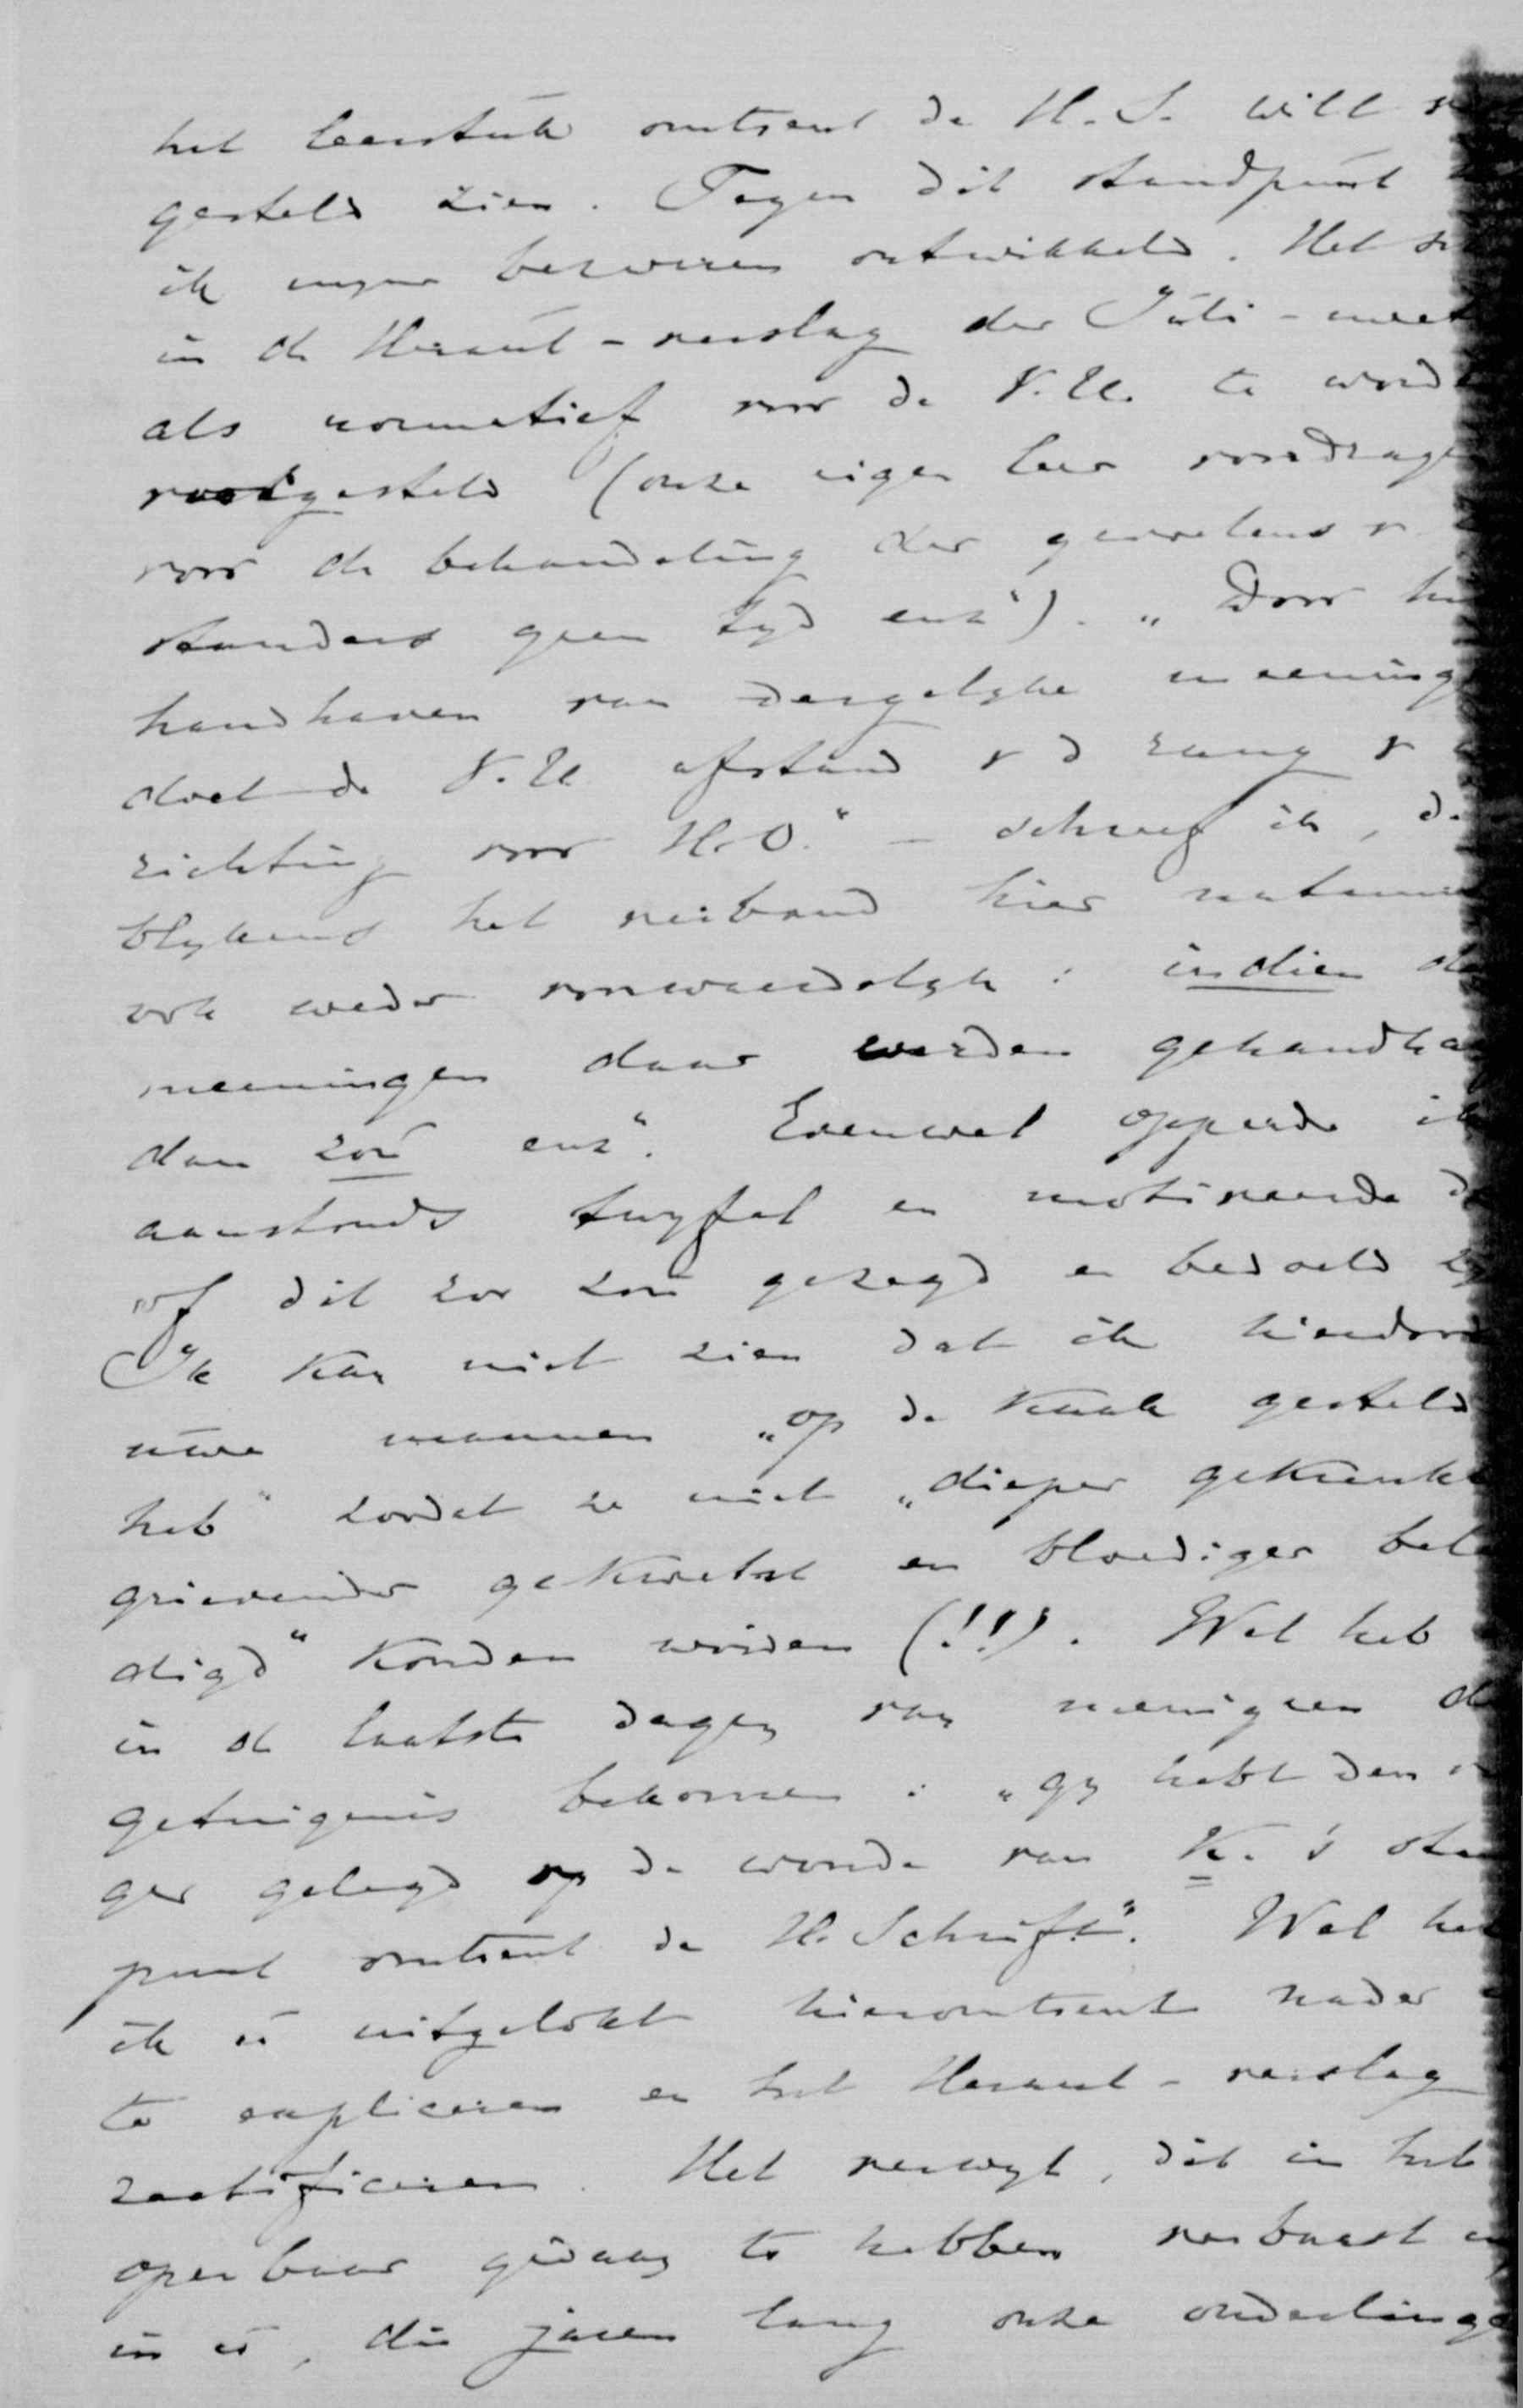 het leerstuk omtrent de H.S. wilt
gesteld zien. Tegen dit standpunt
ik mijne bezwaren ontwikkeld. Het
in de Heraut-verslag der Juli-meet
als normatief voor de V.U. te word
voorgesteld (onze eigen leer voordrage
voor de behandeling der gewetens v.
standers geen tijd enz"). „Door he
handhaven van dergelyke meening
doet de V.U. afstand v d rang v
richting voor H.O." – schreef ik, d
blykens het verband hier natuur
ook weder voorwaardelyk: indien de
meeningen daar werden gehandha
dan zou enz". Evenwel opperde ik
aanstonds twyfel en motiveerde d
of dit zoo zou gezegd en bedoeld zy
Ik kan niet zien dat ik hierdoor
uwe mannen „op de kaak gesteld
heb" zoodat ze niet „dieper gekrenkt
grievender gekwetst en bloediger bele
digd" konden worden (!!). Wel heb
in de laatste dagen van menigeen de
getuigenis bekomen: „gy hebt den v
ger gelegd op de wonde van K.'s stan
punt omtrent de H. Schrift". Wel heb
ik U uitgelokt hieromtrent nader
te expliceren en het Heraut-verslag
rectificeren. Het verwyt, dit in het
openbaar gedaan te hebben verbaast
in U, die jaren lang onze onderlinge